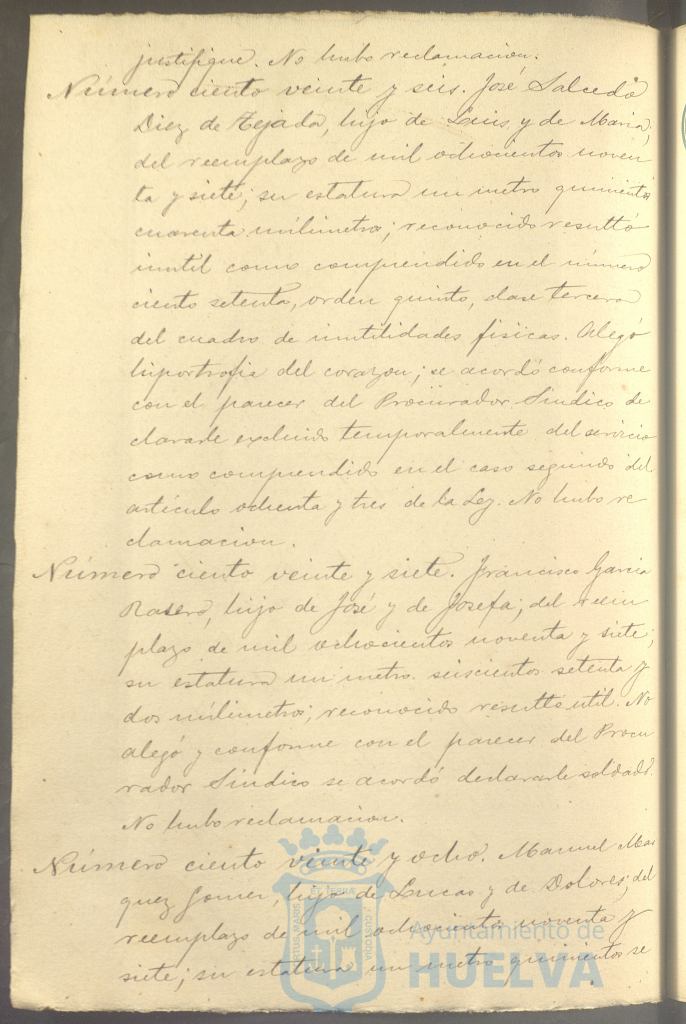 justifique. No hubo reclamacion.
Número ciento veinte y seis. José Salcedo
Diez de Tejada, hijo de Luis y de Maria;
del reemplazo de mil ochocientos noven
ta y siete; su estatura un metro quinientos
cuarenta milimetros; reconocido resultó
inutil como comprendido en el número
ciento setenta, orden quinto, clase tercera
del cuadro de inutilidades fisicas. Alegó
hiportrofia del corazon; se acordó conforme
con el parecer del Procurador Sindico de
clararle excluido temporalmente del servicio
como comprendido en el caso segundo del
artículo ochenta y tres de la Ley. No hubo re
clamacion.
Número ciento veinte y siete. Francisco Garcia
Rasero, hijo de José y de Josefa; del reem
plazo de mil ochocientos noventa y siete;
su estatura un metro seiscientos setenta y
dos milimetros; reconocido resultó util. No
alegó y conforme con el parecer del Procu
rador Sindico se acordó declararle soldado.
No hubo reclamacion.
Número ciento veinte y ocho. Manuel Mar
quez Gomez, hijo de Lucas y de Dolores; del
reemplazo de mil ochocientos noventa y
siete; su estatura un metro quinientos se
Ayuntamiento de
HUELVA